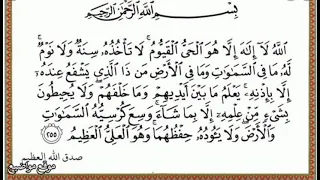 بِسْمِ اللَّهِ الرَّحْمَٰنِ الرَّحِيمِ
اللَّهُ لَا إِلَٰهَ إِلَّا هُوَ الْحَيُّ الْقَيُّومُ ۚ لَا تَأْخُذُهُ سِنَةٌ وَلَا نَوْمٌ ۚ
لَهُ مَا فِي السَّمَاوَاتِ وَمَا فِي الْأَرْضِ ۗ مَن ذَا الَّذِي يَشْفَعُ عِندَهُ
إِلَّا بِإِذْنِهِ ۚ يَعْلَمُ مَا بَيْنَ أَيْدِيهِمْ وَمَا خَلْفَهُمْ ۖ وَلَا يُحِيطُونَ
بِشَيْءٍ مِّنْ عِلْمِهِ إِلَّا بِمَا شَاءَ ۚ وَسِعَ كُرْسِيُّهُ السَّمَاوَاتِ
وَالْأَرْضَ ۖ وَلَا يَئُودُهُ حِفْظُهُمَا ۚ وَهُوَ الْعَلِيُّ الْعَظِيمُ ٢٥٥
صدق الله العظيم
موقع مواضيع